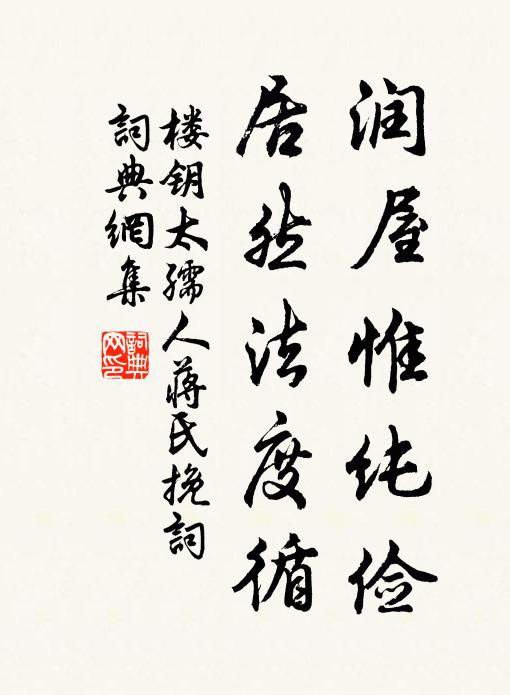 润屋惟纯俭
居然法度循
楼钥太孺人蒋氏挽词
詞典網集
詞典網印